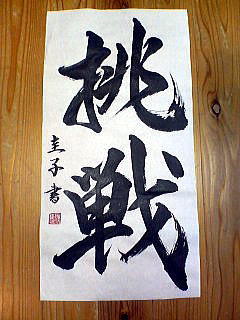 挑戦
圭子書